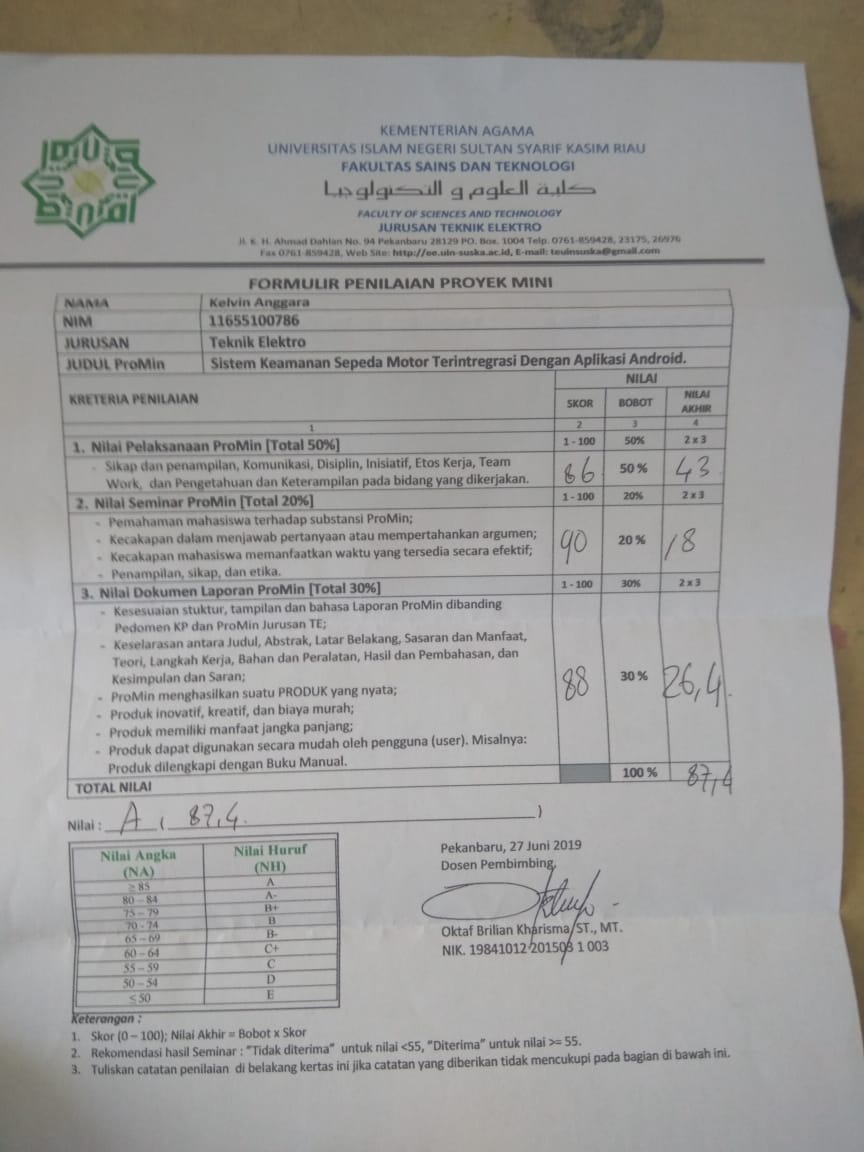 KEMENTERIAN AGAMA
UNIVERSITAS ISLAM NEGERI SULTAN SYARIF KASIM RIAU
FAKULTAS SAINS DAN TEKNOLOGI
كلية العلوم و التكنولوجيا
FACULTY OF SCIENCES AND TECHNOLOGY
JURUSAN TEKNIK ELEKTRO
Jl. K. H. Ahmad Dahlan No. 94 Pekanbaru 28129 PO. Box. 1004 Telp. 0761-859428, 23175, 26976
Fax 0761-859428, Web Site: http://ee.uin-suska.ac.id, E-mail: teuinsuska@gmail.com
FORMULIR PENILAIAN PROYEK MINI
NAMA Kelvin Anggara
NIM 11655100786
JURUSAN Teknik Elektro
JUDUL ProMin Sistem Keamanan Sepeda Motor Terintregrasi Dengan Aplikasi Android.
KRETERIA PENILAIAN NILAI
SKOR BOBOT NILAI AKHIR
1 2 3 4
1. Nilai Pelaksanaan ProMin [Total 50%] 1 - 100 50% 2 x 3
- Sikap dan penampilan, Komunikasi, Disiplin, Inisiatif, Etos Kerja, Team
Work, dan Pengetahuan dan Keterampilan pada bidang yang dikerjakan. 86 50 % 43
2. Nilai Seminar ProMin [Total 20%] 1 - 100 20% 2 x 3
- Pemahaman mahasiswa terhadap substansi ProMin;
- Kecakapan dalam menjawab pertanyaan atau mempertahankan argumen; 90 20 % 18
- Kecakapan mahasiswa memanfaatkan waktu yang tersedia secara efektif;
- Penampilan, sikap, dan etika.
3. Nilai Dokumen Laporan ProMin [Total 30%] 1 - 100 30% 2 x 3
- Kesesuaian stuktur, tampilan dan bahasa Laporan ProMin dibanding
Pedomen KP dan ProMin Jurusan TE;
- Keselarasan antara Judul, Abstrak, Latar Belakang, Sasaran dan Manfaat,
Teori, Langkah Kerja, Bahan dan Peralatan, Hasil dan Pembahasan, dan
Kesimpulan dan Saran; 88 30 % 26,4.
- ProMin menghasilkan suatu PRODUK yang nyata;
- Produk inovatif, kreatif, dan biaya murah;
- Produk memiliki manfaat jangka panjang;
- Produk dapat digunakan secara mudah oleh pengguna (user). Misalnya:
Produk dilengkapi dengan Buku Manual.
TOTAL NILAI 100 % 87,4
Nilai : A ( 87,4. )
Nilai Angka (NA) Nilai Huruf (NH)
≥ 85 A
80 – 84 A-
75 – 79 B+
70 - 74 B
65 – 69 B-
60 – 64 C+
55 – 59 C
50 – 54 D
≤ 50 E
Pekanbaru, 27 Juni 2019
Dosen Pembimbing,
Oktaf Brilian Kharisma, ST., MT.
NIK. 19841012 201503 1 003
Keterangan :
1. Skor (0 – 100); Nilai Akhir = Bobot x Skor
2. Rekomendasi hasil Seminar : "Tidak diterima" untuk nilai <55, "Diterima" untuk nilai >= 55.
3. Tuliskan catatan penilaian di belakang kertas ini jika catatan yang diberikan tidak mencukupi pada bagian di bawah ini.